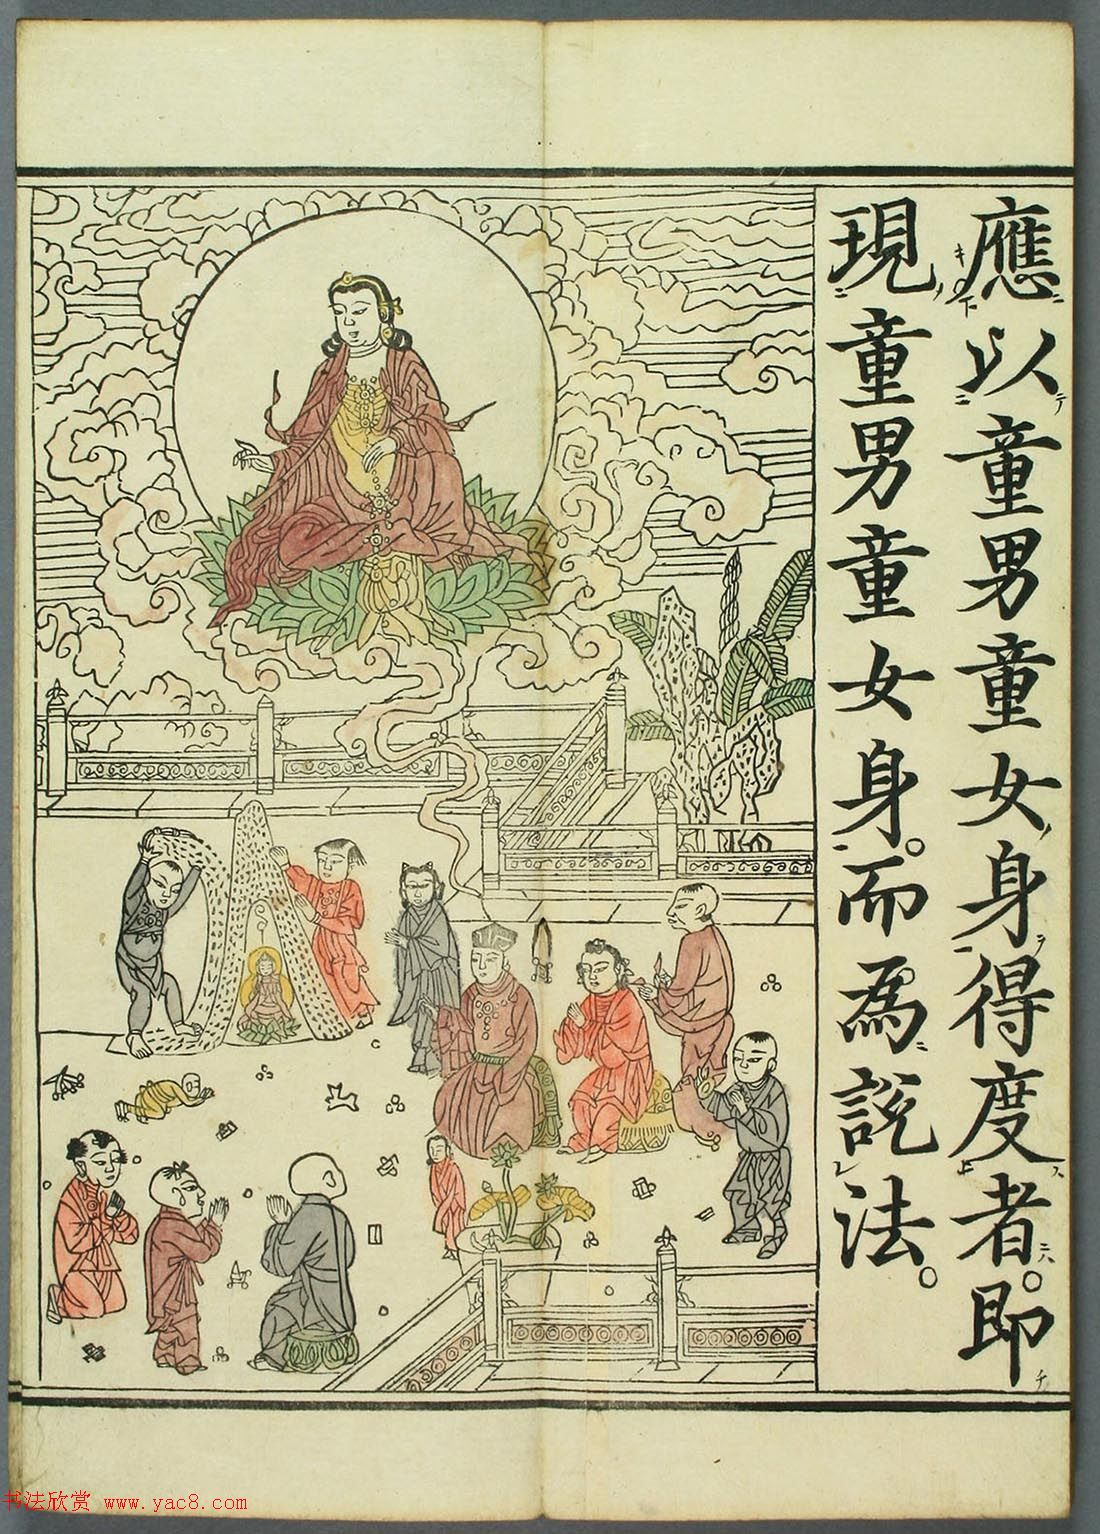 應以童男童女身得度者。即
現童男童女身。而為說法。
书法欣赏 www.yac8.com